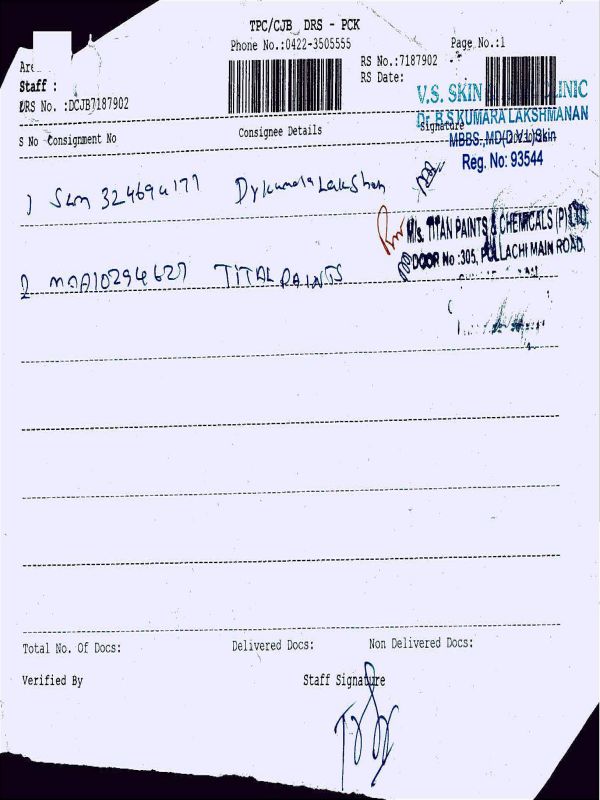 TPC/CJB DRS - PCK
Phone No.:0422-3505555 Page No.:1
RS No.:7187902
Staff : RS Date:
DRS No. :DCJB7187902
V.S. SKIN CLINIC
Dr. B.S KUMARA LAKSHMANAN
S No Consignment No Consignee Details Signature
MBBS.,MD(D.V.L)Skin
Reg. No: 93544
1 Skm 324694177
M/s. TITAN PAINTS & CHEMICALS (P) LTD,
DOOR No :305, POLLACHI MAIN ROAD,
2 MAA10294627 TITAL PAINTS
Total No. Of Docs: Delivered Docs: Non Delivered Docs:
Verified By Staff Signature